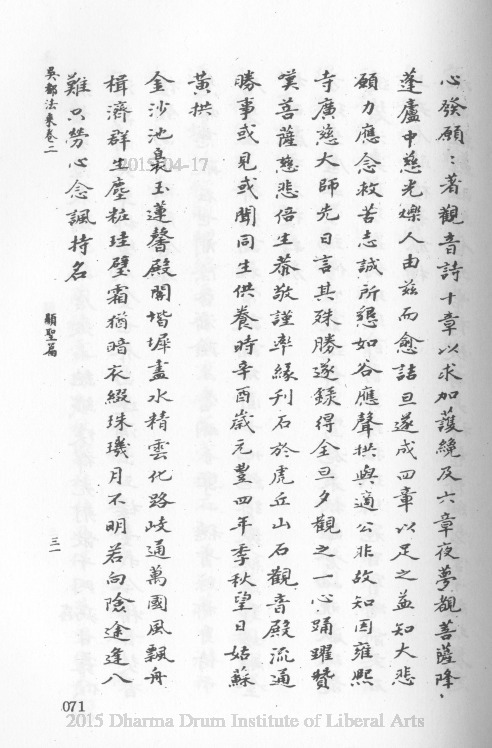 心發願：著觀音詩十章以求加護纔及六章夜夢觀菩薩降，
蓬廬中慈光爍人由茲而愈詰旦遂成四章以足之益知大悲
願力應念救苦志誠所懇如谷應聲拱與適公非故知因雍熙
寺廣慈大師先日言其殊勝遂錄得全旦夕觀之一心踊躍贊
嘆菩薩慈悲倍生恭敬謹率緣刊石於虎丘山石觀音殿流通
勝事或見或聞同生供養時辛酉歲元豐四年季秋望日姑蘇
黃拱
金沙池裊玉蓮馨殿閣堦墀盡水精雲化路岐通萬國風飄舟
楫濟群生塵粧珪璧霜猶暗衣綴珠璣月不明若向險途逢八
難只勞心念諷持名
吳都法乘卷二
顯聖篇
三一
071
2015-04-17
2015 Dharma Drum Institute of Liberal Arts